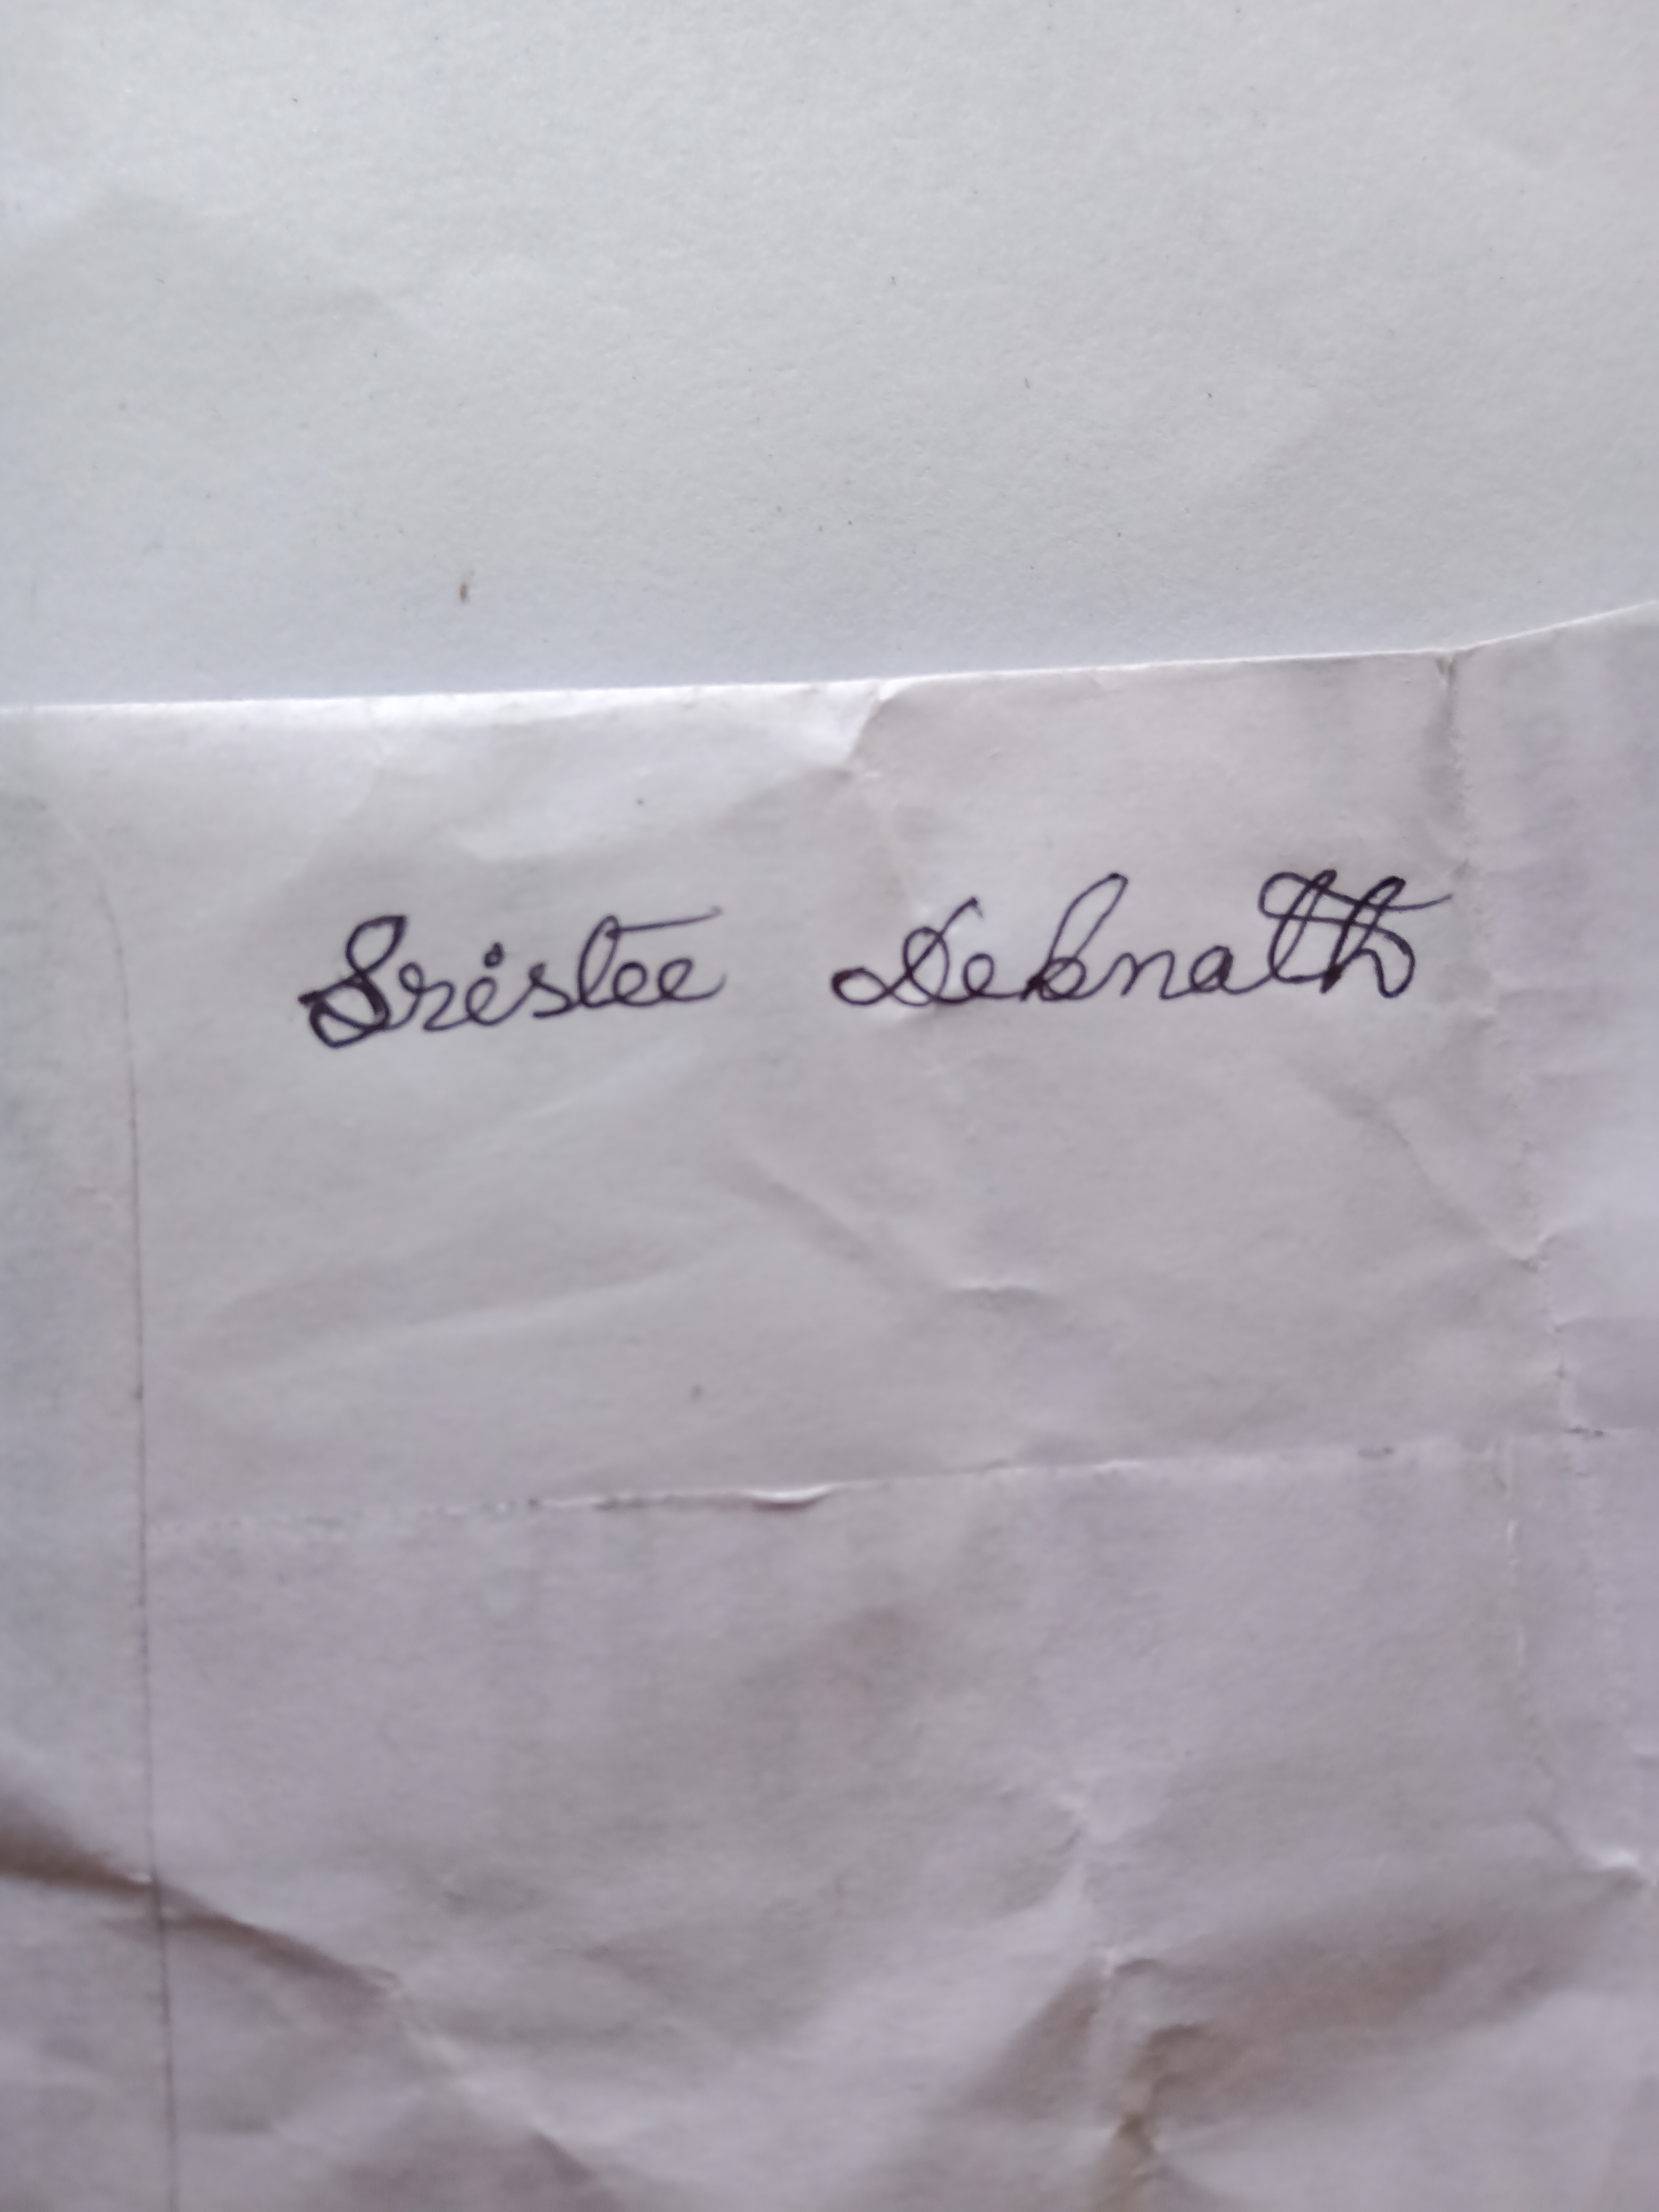 Sristee Debnath